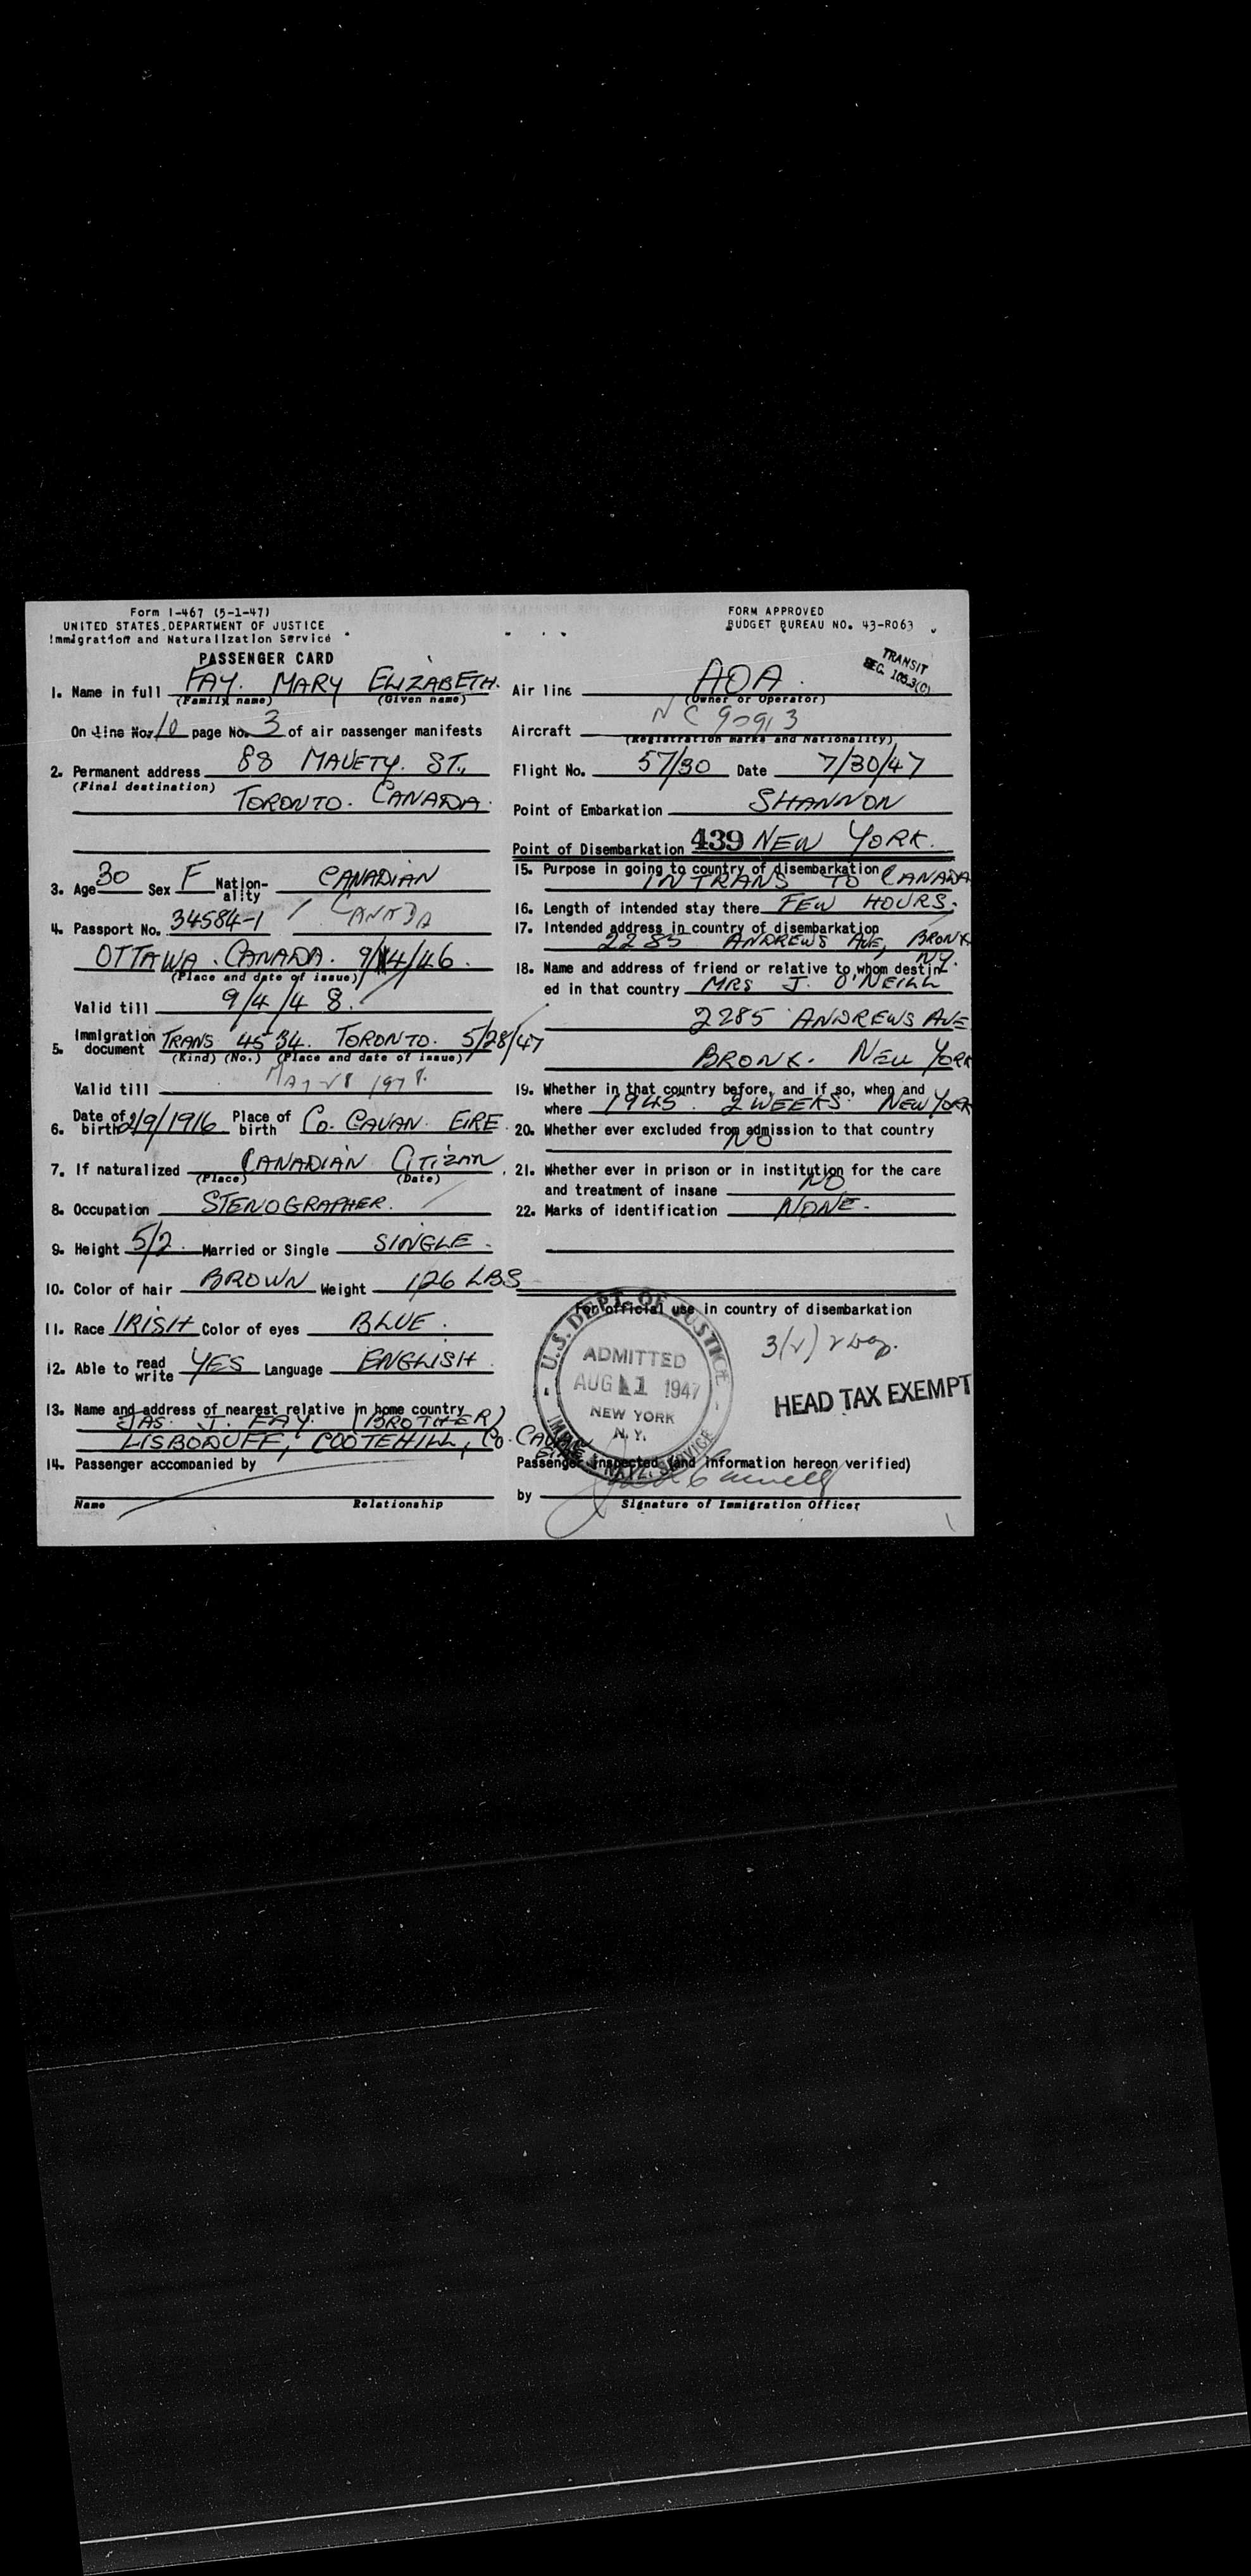 Form I-467 (5-1-47)
UNITED STATES DEPARTMENT OF JUSTICE
Immigration and Naturalization Service
PASSENGER CARD
1. Name in full FAY. MARY ELIZABETH.
(Family name) (Given name)
On line No. 10 page No. 3 of air passenger manifests
2. Permanent address 88 MAVETY. ST.,
(Final destination) TORONTO. CANADA.
3. Age 30 Sex F Nation-ality CANADIAN
4. Passport No. 34584-1 / CANADA
OTTAWA. CANADA. 9/4/46.
(Place and date of issue)
Valid till 9/4/48.
5. Immigration document TRANS 4534. TORONTO. 5/28/47
(Kind) (No.) (Place and date of issue)
Valid till
6. Date of birth 2/9/1916 Place of birth CO. CAVAN. EIRE.
7. If naturalized CANADIAN CITIZAN
(Place) (Date)
8. Occupation STENOGRAPHER.
9. Height 5/2. Married or Single SINGLE.
10. Color of hair BROWN Weight 126 LBS
11. Race IRISH Color of eyes BLUE.
12. Able to read write YES Language ENGLISH
13. Name and address of nearest relative in home country
JAS. J. FAY. (BROTHER)
LISBODUFF, COOTEHILL, CO. CAVAN
EIRE
14. Passenger accompanied by
Name Relationship
FORM APPROVED
BUDGET BUREAU NO. 43-R063
TRANSIT
SEC. 106.3(C)
Air line AOA.
(Owner or Operator)
Aircraft NC 90913
(Registration marks and Nationality)
Flight No. 57/30 Date 7/30/47
Point of Embarkation SHANNON
Point of Disembarkation 439 NEW YORK.
15. Purpose in going to country of disembarkation
IN TRANS TO CANADA
16. Length of intended stay there FEW HOURS.
17. Intended address in country of disembarkation
2285 ANDREWS AVE, BRONX
NY.
18. Name and address of friend or relative to whom destin-
ed in that country MRS J. O'NEILL
2285 ANDREWS AVE
BRONX. NEW YORK
19. Whether in that country before, and if so, when and
where 1945. 2 WEEKS. NEW YORK
20. Whether ever excluded from admission to that country
NO
21. Whether ever in prison or in institution for the care
and treatment of insane NO
22. Marks of identification NONE.
For official use in country of disembarkation
U.S. DEPT. OF JUSTICE
ADMITTED
AUG 1 1947
NEW YORK
N.Y.
IMM. & NATZ. SERVICE
HEAD TAX EXEMPT
Passenger inspected (and information hereon verified)
by
Signature of Immigration Officer